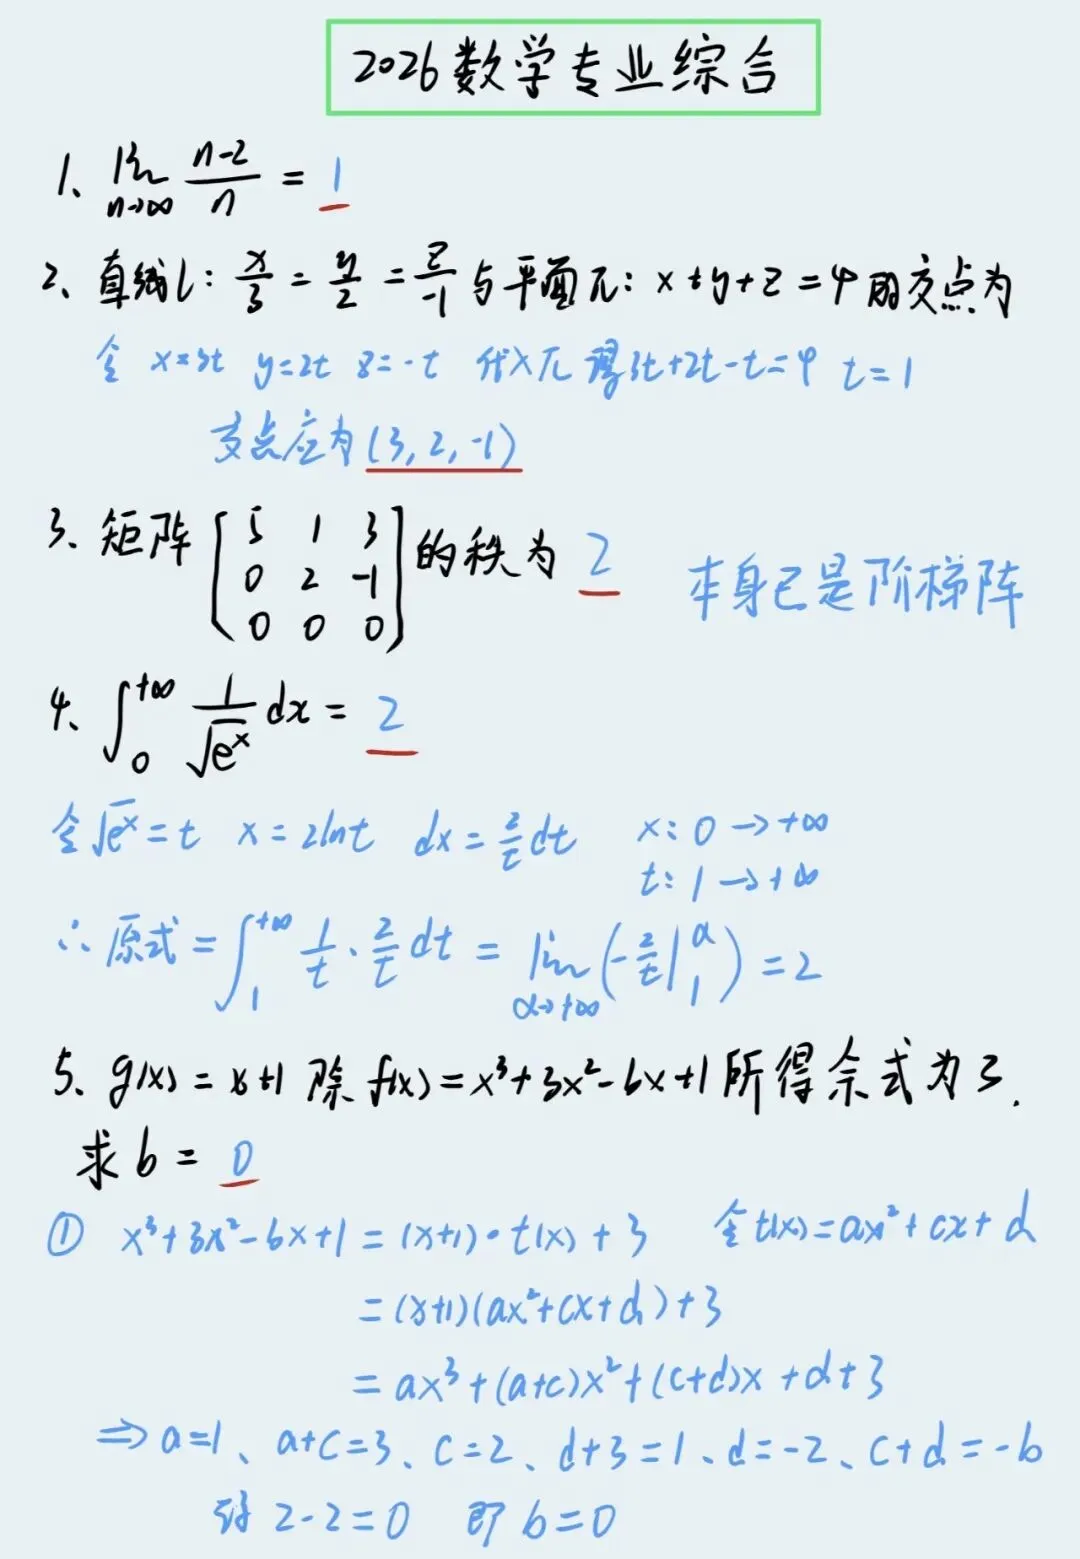 2026数学专业综合
1、lim n→∞ (n-2)/n = 1
2、直线l: x/3 = y/2 = z/-1 与平面π: x+y+z=4的交点为
令 x=3t y=2t z=-t 代入π 得3t+2t-t=4 t=1
交点应为(3,2,-1)
3、矩阵 [5 1 3; 0 2 -1; 0 0 0] 的秩为 2 本身已是阶梯阵
4、∫₀^{+∞} 1/√(eˣ) dx = 2
令√(eˣ)=t x=2lnt dx=2/t dt x: 0→+∞
t: 1→+∞
∴原式=∫₁^{+∞} 1/t · 2/t dt = lim α→+∞ (-2/t |₁^α) = 2
5、g(x)=x+1 除 f(x)=x³+3x²-bx+1所得余式为3.
求 b = 0
① x³+3x²-bx+1=(x+1)·t(x)+3 令t(x)=ax²+cx+d
=(x+1)(ax²+cx+d)+3
=ax³+(a+c)x²+(c+d)x+d+3
⇒a=1、a+c=3、c=2、d+3=1、d=-2、c+d=-b
得 2-2=0 即 b=0